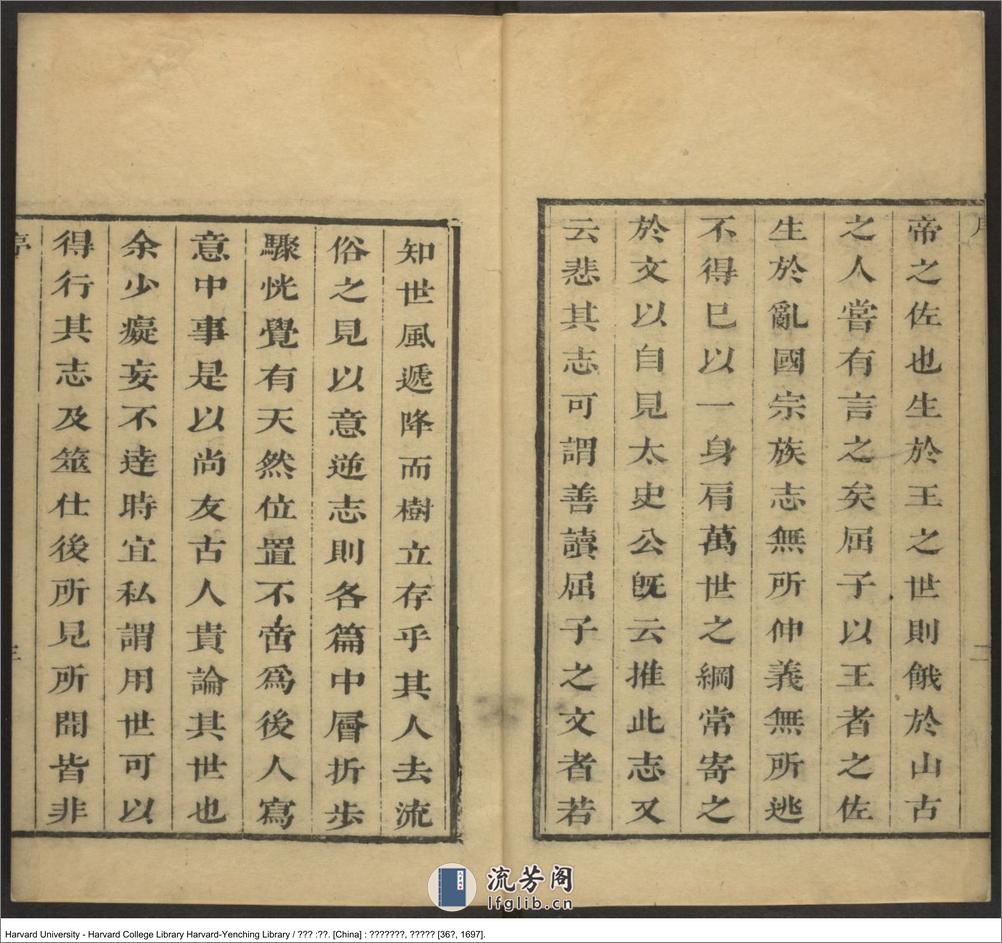 帝之佐也生於王之世則餓於山古
之人嘗有言之矣屈子以王者之佐
生於亂國宗族志無所伸義無所逃
不得已以一身肩萬世之綱常寄之
於文以自見太史公旣云推此志又
云悲其志可謂善讀屈子之文者若
二
知世風遞降而樹立存乎其人去流
俗之見以意逆志則各篇中層折步
驟恍覺有天然位置不啻爲後人寫
意中事是以尚友古人貴論其世也
余少癡妄不達時宜私謂用世可以
得行其志及筮仕後所見所聞皆非
流芳阁
lfglib.cn
Harvard University - Harvard College Library Harvard-Yenching Library / ??? :??. [China] : ???????, ????? [36?, 1697].